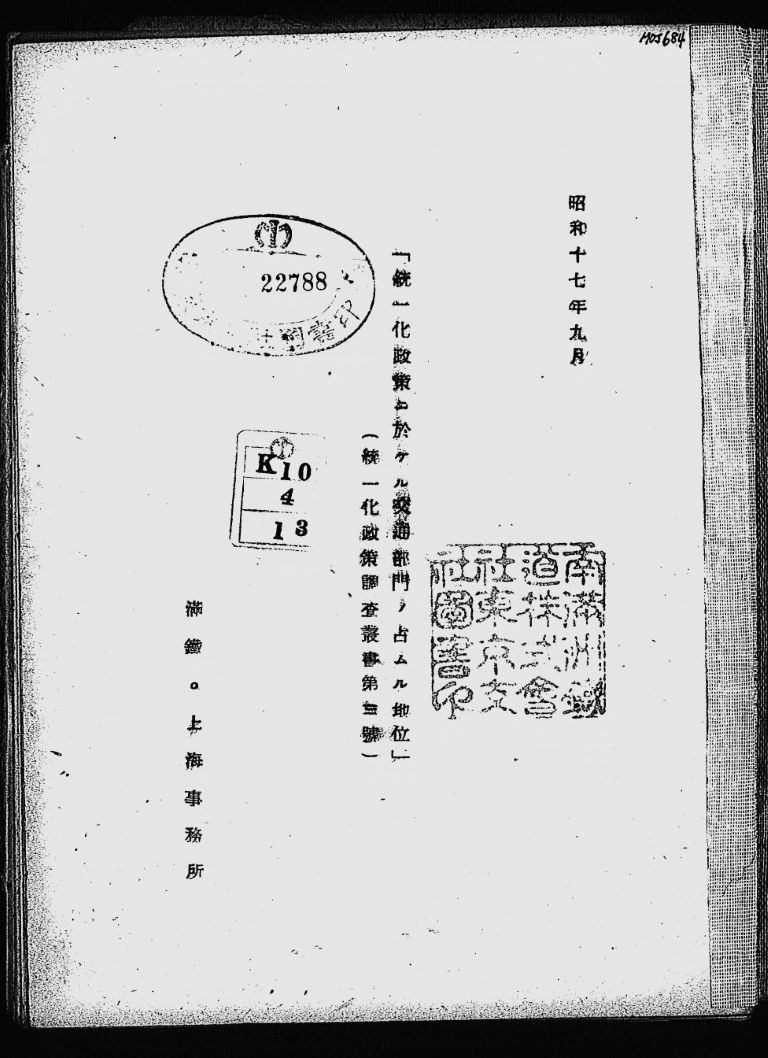 MOJ684
昭和十七年九月
「統一化政策ニ於ケル交通部門ノ占ムル地位」
(統一化政策調査叢書第三號)
滿鐵。上海事務所
22788
圖書印
K10
4
13
南滿洲鐵
道株式會
社東京支
社圖書印